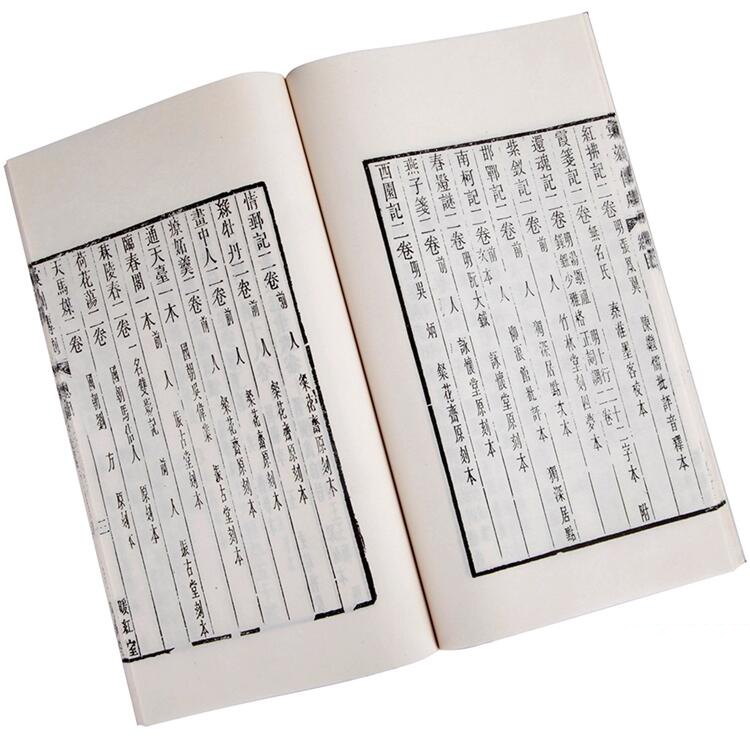 紅拂記二卷 明張鳳翼 陳繼儒批評音釋本
霞箋記二卷 無名氏 秦淮墨客校本
還魂記二卷 明湯顯祖 明十行二十二字本 附
鈕少雅格正詞調二卷
紫釵記二卷 前人 竹林堂刻四夢本
邯鄲記二卷 前人 獨深居點次本
南柯記二卷 前人 柳浪館批評本 獨深居點
次本
春燈謎二卷 明阮大鋮 詠懷堂原刻本
燕子箋二卷 前人 詠懷堂原刻本
西園記二卷 明吳炳 粲花齋原刻本
情郵記二卷 前人 粲花齋原刻本
綠牡丹二卷 前人 粲花齋原刻本
畫中人二卷 前人 粲花齋原刻本
療妬羹二卷 前人 粲花齋原刻本
通天臺一本 國朝吳偉業 振古堂刻本
臨春閣一本 前人 振古堂刻本
秣陵春二卷 一名雙影記 前人 振古堂刻本
荷花蕩二卷 國朝馬佶人 原刻本
天馬媒二卷 國朝劉方 原刻本
二
暖紅室